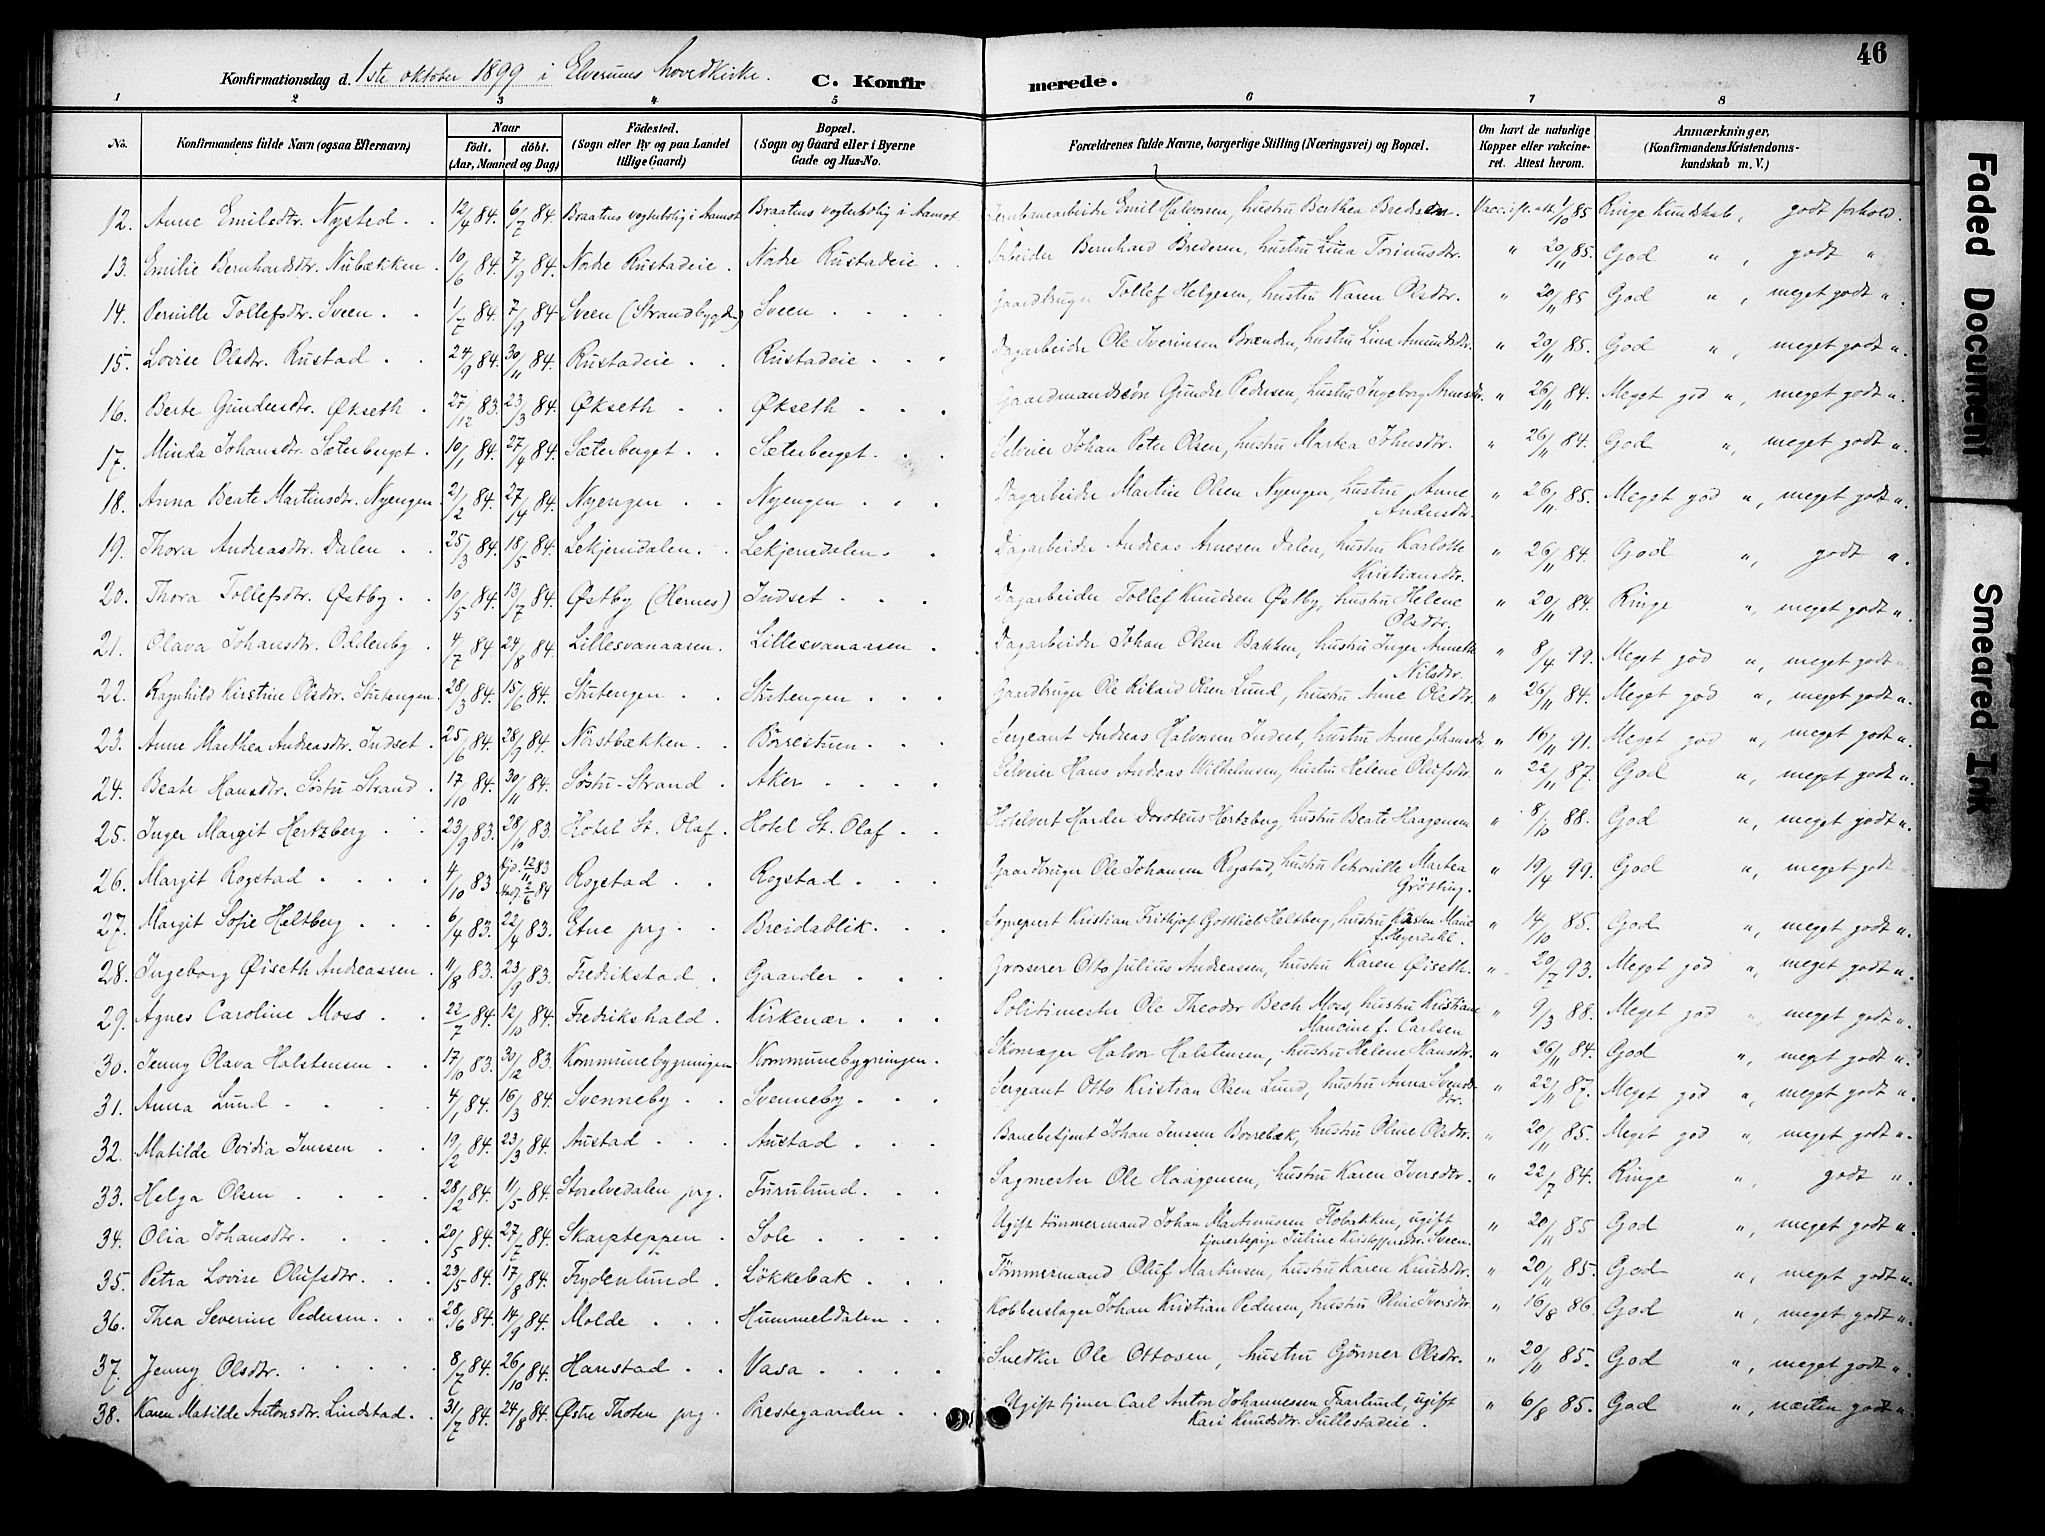 46
Konfirmationsdag d. 1ste oktober 1899 i Elverums hovedkirke. C. Konfirmerede.
1 2 3 4 5 6 7 8
No. Konfirmandens fulde Navn (ogsaa Efternavn) Naar født. døbt. (Aar, Maaned og Dag) Fødested. (Sogn eller By og paa Landet tillige Gaard) Bopæl. (Sogn og Gaard eller i Byerne Gade og Hus-No. Forældrenes fulde Navne, borgerlige Stilling (Næringsvei) og Bopæl. Om havt de naturlige Kopper eller vakcineret. Attest herom. Anmærkninger, (Konfirmandens Kristendomskundskab m. V.)
12. Anne Emilsdtr. Nysted 12/4 84. 6/7 84. Braatens vogterbolig i Aamot Braatens vogterbolig i Aamot Jernbanearbeider Emil Halvorsen, hustru Berthea Bredesen. Vacc. ifl. att. 1/10 85 Ringe Kundskab, godt forhold.
13. Emilie Bernhardsdtr. Nubækken 10/6 84. 7/9 84. Nordre Rustadeie Nordre Rustadeie Arbeider Bernhard Bredesen, hustru Lina Torinusdtr. " 20/11 85. God ", godt "
14. Pernille Tollefsdtr. Sveen 1/7 84. 7/9 84 Sveen (Strandbygden) Sveen Gaardbruger Tollef Helgesen, hustru Karen Olsdtr. " 20/11 85 God ", meget godt ".
15. Lovise Olsdtr. Rustad 24/9 84. 30/11 84. Rustadeie Rustadeie Dagarbeider Ole Iverinsen Brænden, hustru Lina Amundsdtr. " 20/11 85. God ", meget godt ".
16. Berte Gundersdtr. Økseth 27/12 83. 23/3 84. Økseth Økseth Gaardmandssøn Gunder Pedersen, hustru Ingeborg Arnesdtr. " 26/11 84. Meget god ", meget godt ".
17. Minda Johansdtr. Sæterberget 10/1 84. 27/4 84. Sæterberget Sæterberget Selveier Johan Peter Olsen, hustru Martea Johnsdtr. " 26/11 84. God ", meget godt ".
18. Anna Beate Martinsdtr. Nyengen 21/2 84. 27/4 84. Nyengen Nyengen Dagarbeider Martin Olsen Nyengen, hustru Anne Andersdtr. " 26/11 85. Meget god ", meget godt ".
19. Thora Andreasdtr. Dalen 25/3 84. 18/5 84. Lekjerndalen Lekjerndalen Dagarbeider Andreas Arnesen Dalen, hustru Karlotte Kristiansdtr. " 26/11 84. God ", godt ".
20. Thora Tollefsdtr. Østby 10/5 84. 13/7 84. Østby (Hernes) Indset Dagarbeider Tollef Knudsen Østby, hustru Helene Olsdtr. " 20/11 84. Ringe ", meget godt ".
21. Olava Johansdtr. Oldenby 4/7 84 24/8 84. Lillesvanaasen Lillesvanaasen Dagarbeider Johan Olsen Bakken, hustru Inger Annette Nilsdtr. " 8/4 99. Meget god ", meget godt ".
22. Ragnhild Kirstine Olsdtr. Stutengen 28/3 84. 15/6 84. Stutengen Stutengen Gaardbruger Ole Rikard Olsen Lund, hustru Anne Olsdtr. " 26/11 84. Meget god ", meget godt ".
23. Anne Marthea Andreasdtr. Indset 25/6 84. 28/9 84. Nørstbækken Børrestuen Sergeant Andreas Halvorsen Indset, hustru Anne Johansdtr. " 16/11 91. Meget god ", meget godt ".
24. Beate Hansdtr. Søstu-Strand 17/10 84. 30/11 84. Søstu-Strand Aker Selveier Hans Andreas Wilhelmsen, hustru Helene Olufsdtr. " 22/11 87. God ", meget godt ".
25. Inger Margit Hertzberg 23/9 83. 28/10 83. Hotel St. Olaf Hotel St. Olaf Hotelvert Harder Doroteus Hertzberg, hustru Beate Haagensen " 8/10 88. God ", meget godt ".
26. Margit Rogstad 4/10 83 hjd. 12/11 83 stadf. 2/6 84 Rogstad Rogstad Gaardbruger Ole Johansen Rogstad, hustru Petronille Martea Grøtting. " 19/4 99. God ", meget godt "
27. Margit Sofie Heltberg 6/4 83. 22/4 83. Etne prg Breidablik Sognepræst Kristian Frithjof Gottlieb Heltberg, hustru Karen Marie f. Heyerdahl. " 14/10 85. God ", meget godt ".
28. Ingeborg Øiseth Andreassen 11/8 83. 23/9 83. Fredrikstad Gaarder Grosserer Otto Julius Andreassen, hustru Karen Øiseth. " 20/7 93. Meget god ", meget godt ".
29. Agnes Caroline Moss 22/7 84. 12/10 84. Fredrikshald Kirkenær Politimester Ole Theodor Bech Moss, hustru Kristiane Maucine f. Carlsen " 9/3 88. Meget god ", meget godt ".
30. Jenny Olava Halstensen 17/10 83. 30/12 83. Kommunebygningen Kommunebygningen Skomager Halvor Halstensen, hustru Helene Hansdtr. " 26/11 84. God ", meget godt ".
31. Anna Lund 4/1 84. 16/3 84. Svenneby Svenneby Sergeant Otto Kristian Olsen Lund, hustru Anna Svendsdtr. " 22/11 87. Meget god ", meget godt ".
32. Matilde Ovidia Jenssen 19/2 84. 23/3 84. Austad Austad Banebetjent Johan Jenssen Borrebæk, hustru Oline Olsdtr. " 20/11 85. Meget god ", meget godt ".
33. Helga Olsen 28/2 84. 11/5 84. Storelvedalen prg. Furulund Sagmester Ole Haagensen, hustru Karen Iversdtr. " 22/7 84. Ringe ", godt ".
34. Olia Johansdtr. 20/5 84. 27/7 84. Skarpteppen Sole Ugift tømmermand Johan Martinusen Flobakken, ugift tjenestepige Juline Kristoffersdtr. Sveen. " 20/11 85 God ", meget godt ".
35. Petra Lovise Olufsdtr. 23/5 84. 17/8 84. Frydenlund Løkkebak Tømmermand Oluf Martinsen, hustru Karen Knudsdtr. " 20/11 85. God ", meget godt ".
36. Thea Severine Pedersen 28/6 84. 14/9 84. Molde Hummeldalen Kobberslager Johan Kristian Pedersen, hustru Oline Iversdtr. " 16/8 86. God ", meget godt ".
37. Jenny Olsdtr. 8/7 84. 26/10 84. Hanstad Vasa Snedker Ole Ottosen, hustru Gjørner Olsdtr. " 20/11 85. God ", meget godt ".
38. Karen Matilde Antonsdtr. Lindstad 31/7 84. 24/8 84. Østre Thoten prg Prestegaarden Ugift tjener Carl Anton Johannessen Faarlund, ugift Kari Knudsdtr. Sullestadeie. " 6/8 85. God ", næsten godt ".
Faded Document
Smeared Ink